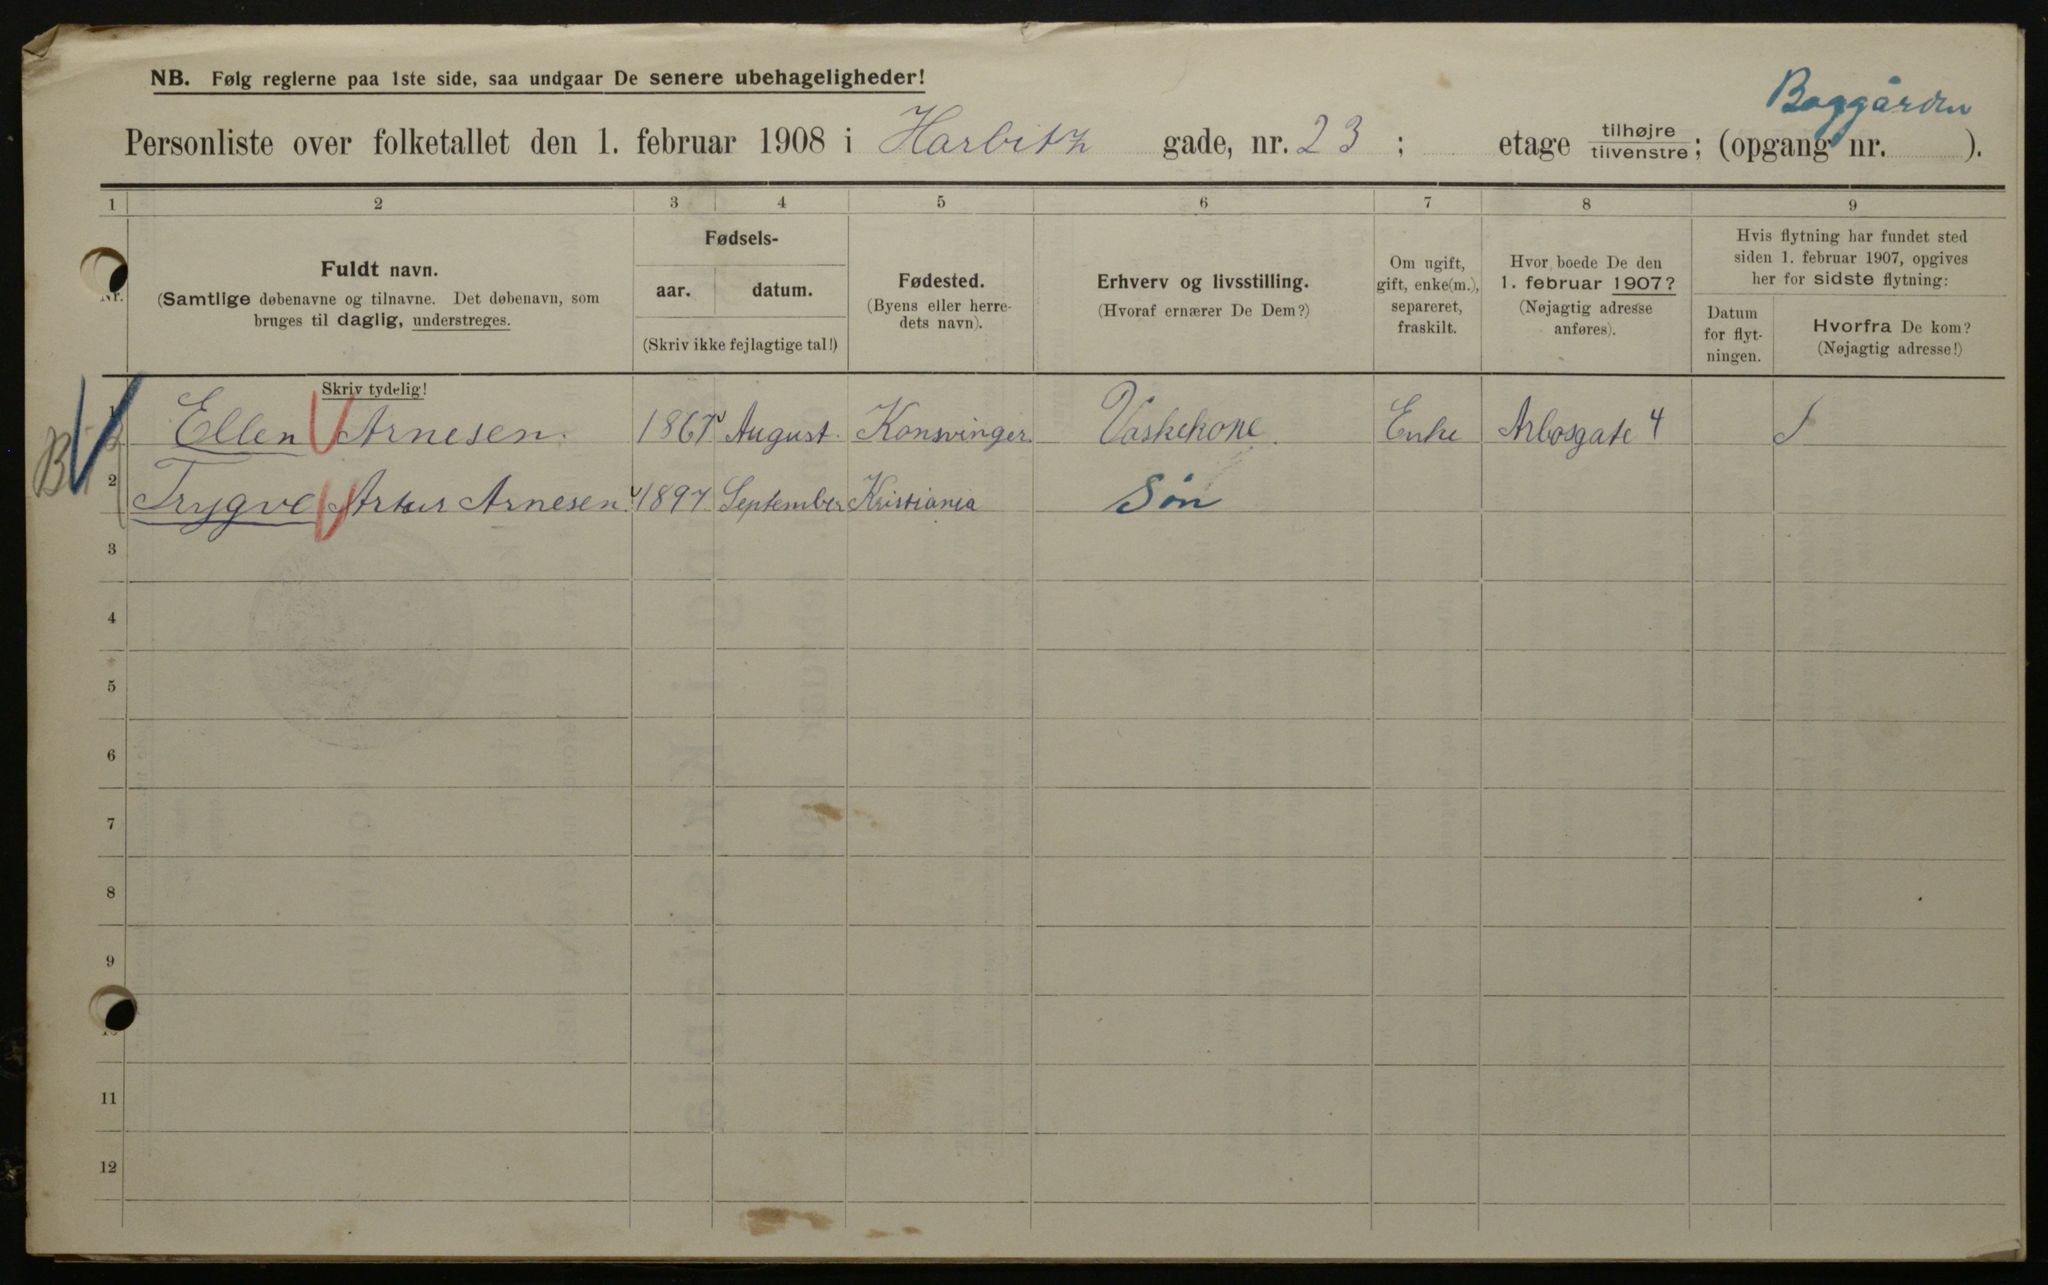 NB. Følg reglerne paa 1ste side, saa undgaar De senere ubehageligheder!
Baggården
Personliste over folketallet den 1. februar 1908 i Harbitz gade, nr. 23; etage tilhøjre/tilvenstre; (opgang nr. ).
1 2 3 4 5 6 7 8 9
Nr.
Fuldt navn.
(Samtlige døbenavne og tilnavne. Det døbenavn, som
bruges til daglig, understreges.
Skriv tydelig!
Fødsels-
aar. datum.
(Skriv ikke fejlagtige tal!)
Fødested.
(Byens eller herre-
dets navn).
Erhverv og livsstilling.
(Hvoraf ernærer De Dem?)
Om ugift,
gift, enke(m.),
separeret,
fraskilt.
Hvor boede De den
1. februar 1907?
(Nøjagtig adresse
anføres).
Hvis flytning har fundet sted
siden 1. februar 1907, opgives
her for sidste flytning:
Datum
for flyt-
ningen.
Hvorfra De kom?
(Nøjagtig adresse!)
1 Ellen Arnesen. 1867 August. Konsvinger. Vaskekone. Enke Arbosgate 4
2 Trygve Artur Arnesen 1897 September Kristiania Søn
3
4
5
6
7
8
9
10
11
12